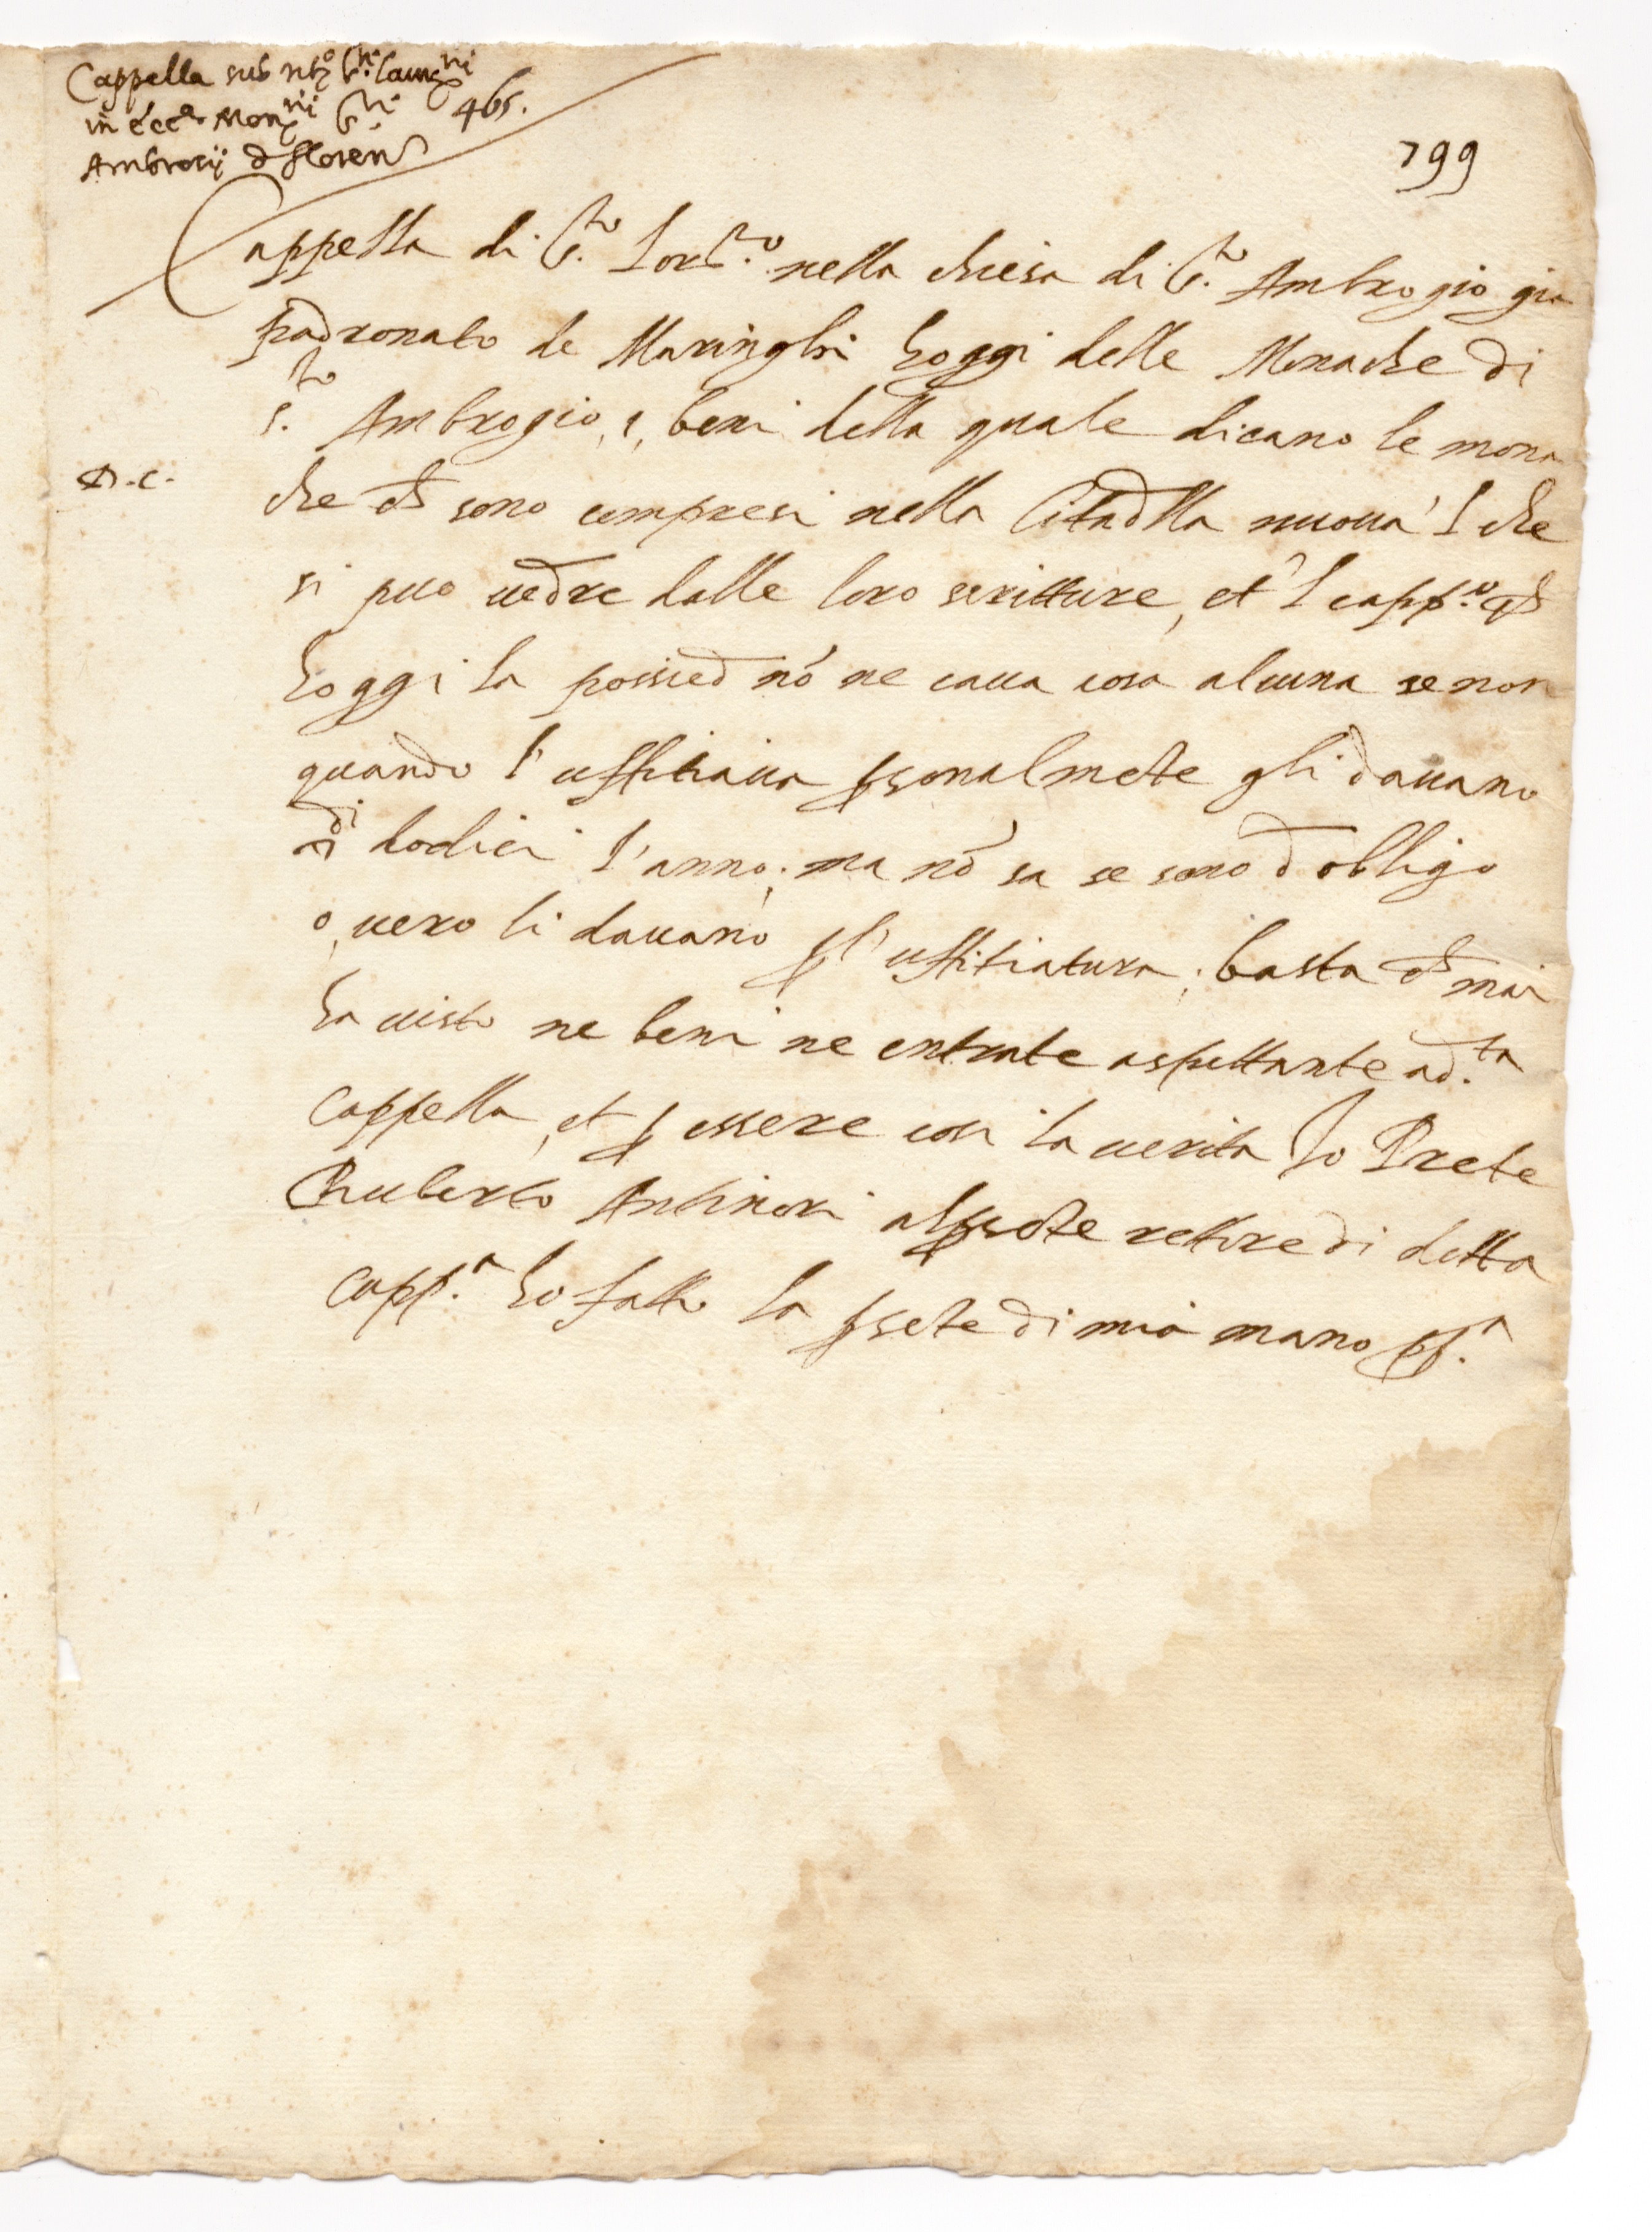 Cappella sub n.º S.ⁿⁱ Laurⁿⁱ
in ecc.ª Monⁿⁱ S.ⁿⁱ
465.
Ambrosij d floren
799
Cappella di S.to Lor.zo nella chiesa di S.to Ambrogio gia
padronato de Maringhi hoggi delle Monache di
S.to Ambrogio, i, beni della quale dicano le mona
D.C.
che ch sono compresi nella Citadlla nuova l che
si puo vedre dalle loro scritture, et l capp.no ch
hoggi la possied nō ne cava cosa alcuna se non
quando l'uffitiava psonalmēte gli davano
di dodici l'anno; ma nō sa se sono d obligo
o, vero li davano p l'uffitiatura; basta ch mai
ha visto ne beni ne entrate aspettante a d.ta
Cappella, et p essere cosi la verita Io Prete
Ruberto Antinori al psēte rettore di detta
capp.a ho fatto la psēte di mia mano pp.a